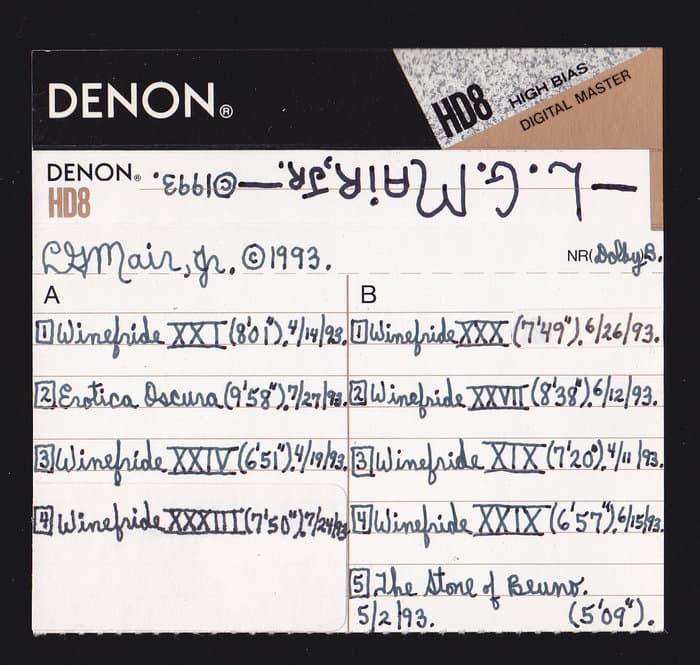 DENON®
HD8 HIGH BIAS
DIGITAL MASTER
DENON®
HD8
—L.G. MAiR, JR.—©1993.
LGMair, Jr. ©1993.
NR(Dolby)B.
A
1 Winefride XXI (8'01"). 4/14/93.
2 Erotica Oscura (9'58"). 7/27/93.
3 Winefride XXIV (6'51"). 4/19/93.
4 Winefride XXXIII (7'50"). 7/24/93.
B
1 Winefride XXX (7'49"). 6/26/93.
2 Winefride XXVII (8'38"). 6/12/93.
3 Winefride XIX (7'20"). 4/11/93.
4 Winefride XXIX (6'57"). 6/15/93.
5 The Stone of Beuno.
5/2/93. (5'09").